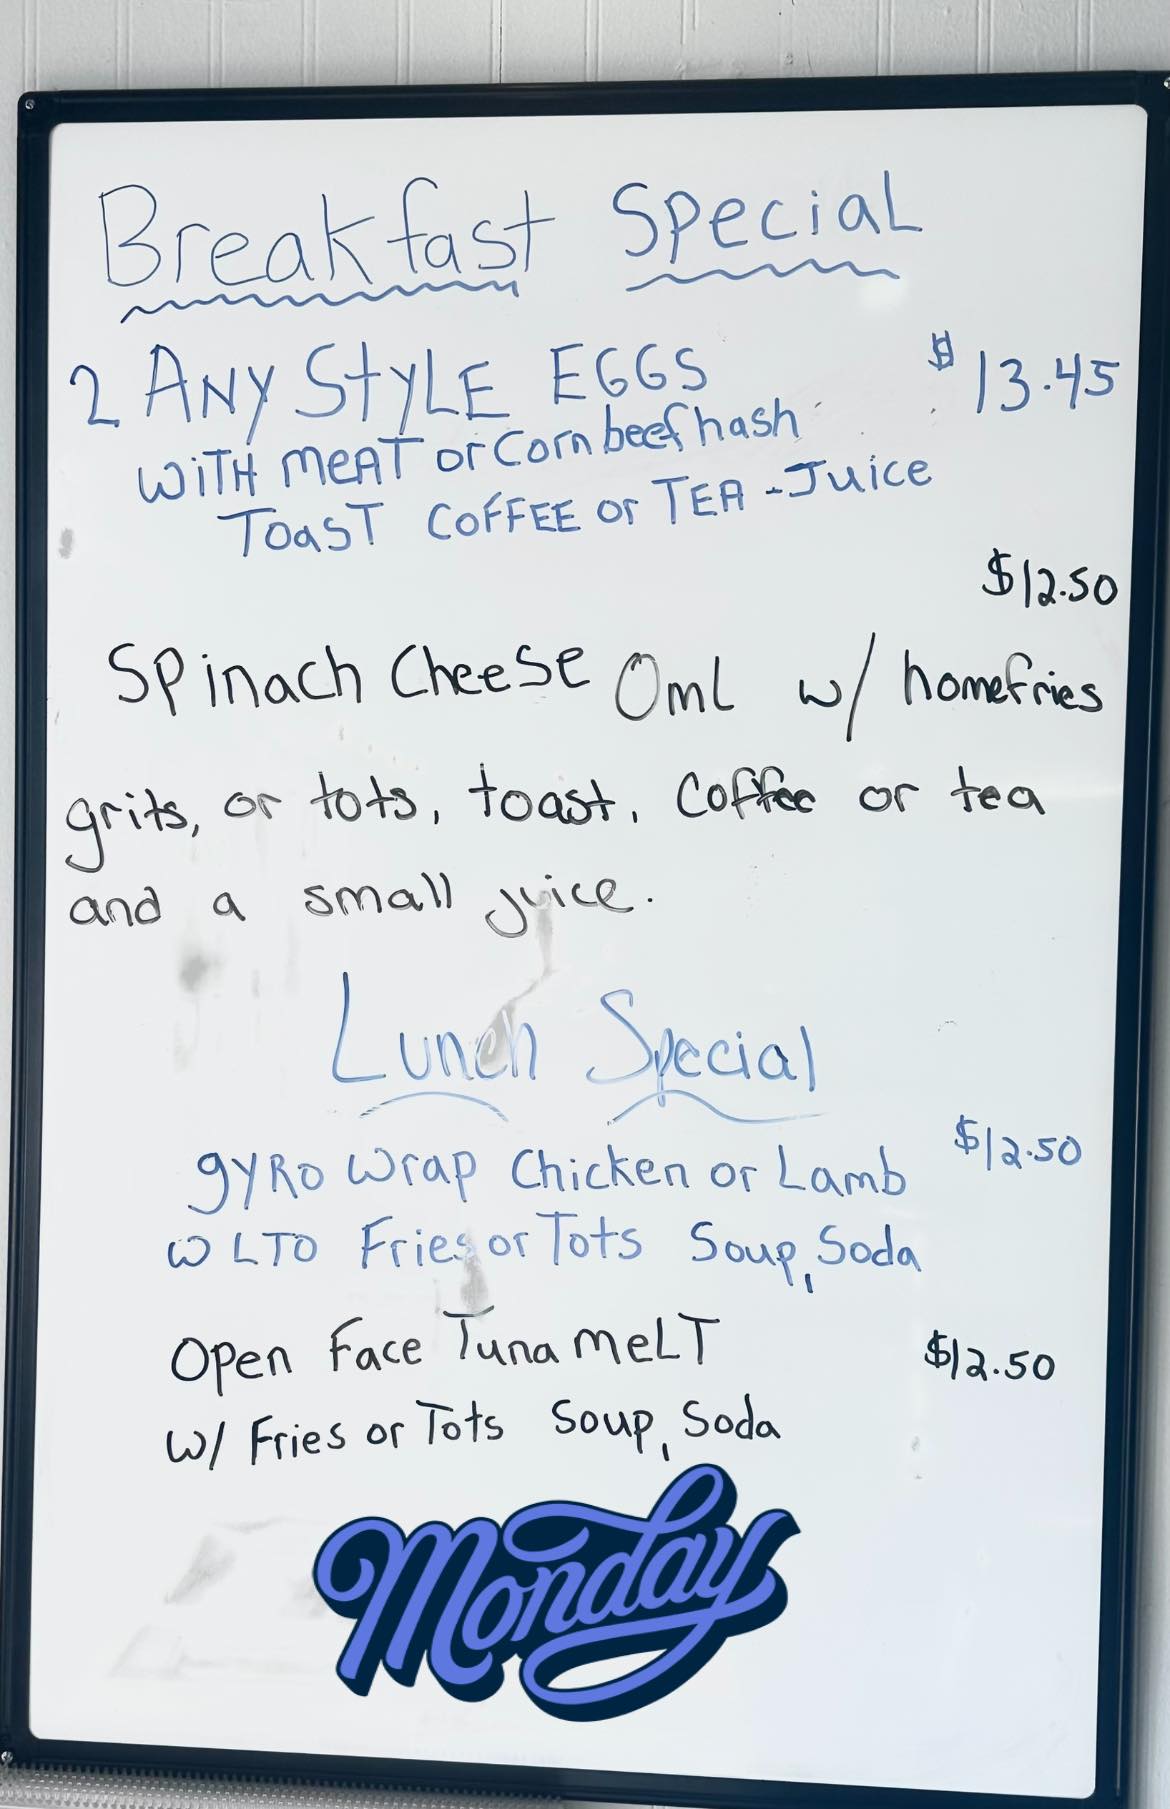 Breakfast Special
2 ANY StyLE EGGS $13.45
WITH meAT or Corn beef hash
TOasT COFFEE or TEA - Juice
$12.50
Spinach Cheese OmL w/ homefries
grits, or tots, toast, Coffee or tea
and a small juice.
Lunch Special
gyRo wrap Chicken or Lamb $12.50
w LTO Fries or Tots Soup, Soda
Open Face Tuna meLT $12.50
w/ Fries or Tots Soup, Soda
Monday